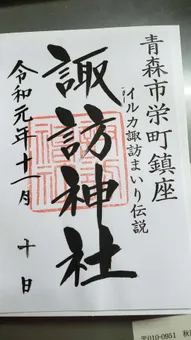 青森市栄町鎮座
イルカ諏訪まいり伝説
諏訪神社
令和元年十一月十日
〒010-0951 秋